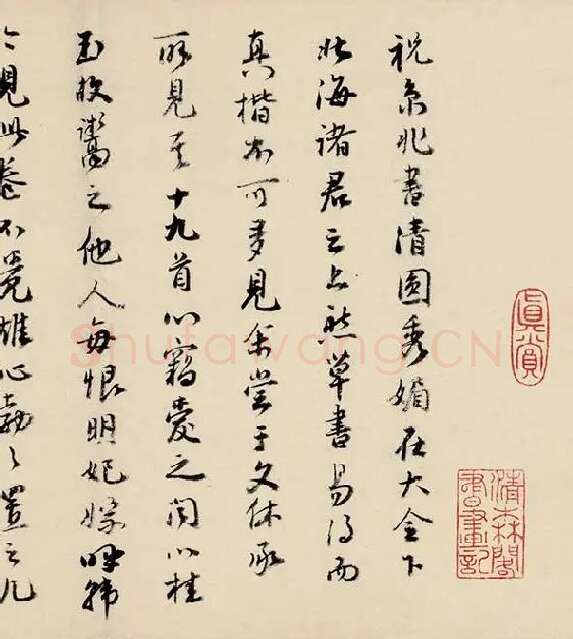 真賞
清森閣書畫記
祝京兆書清圓秀媚在大令下
北海諸君之上然草書易得而
真楷不可多見余嘗于文休承
所見其十九首心竊愛之聞以桂
玉故鬻之他人每恨明妃嫁呼韓
今見此卷不覺雄心勃〻置之几
Shufawang.CN